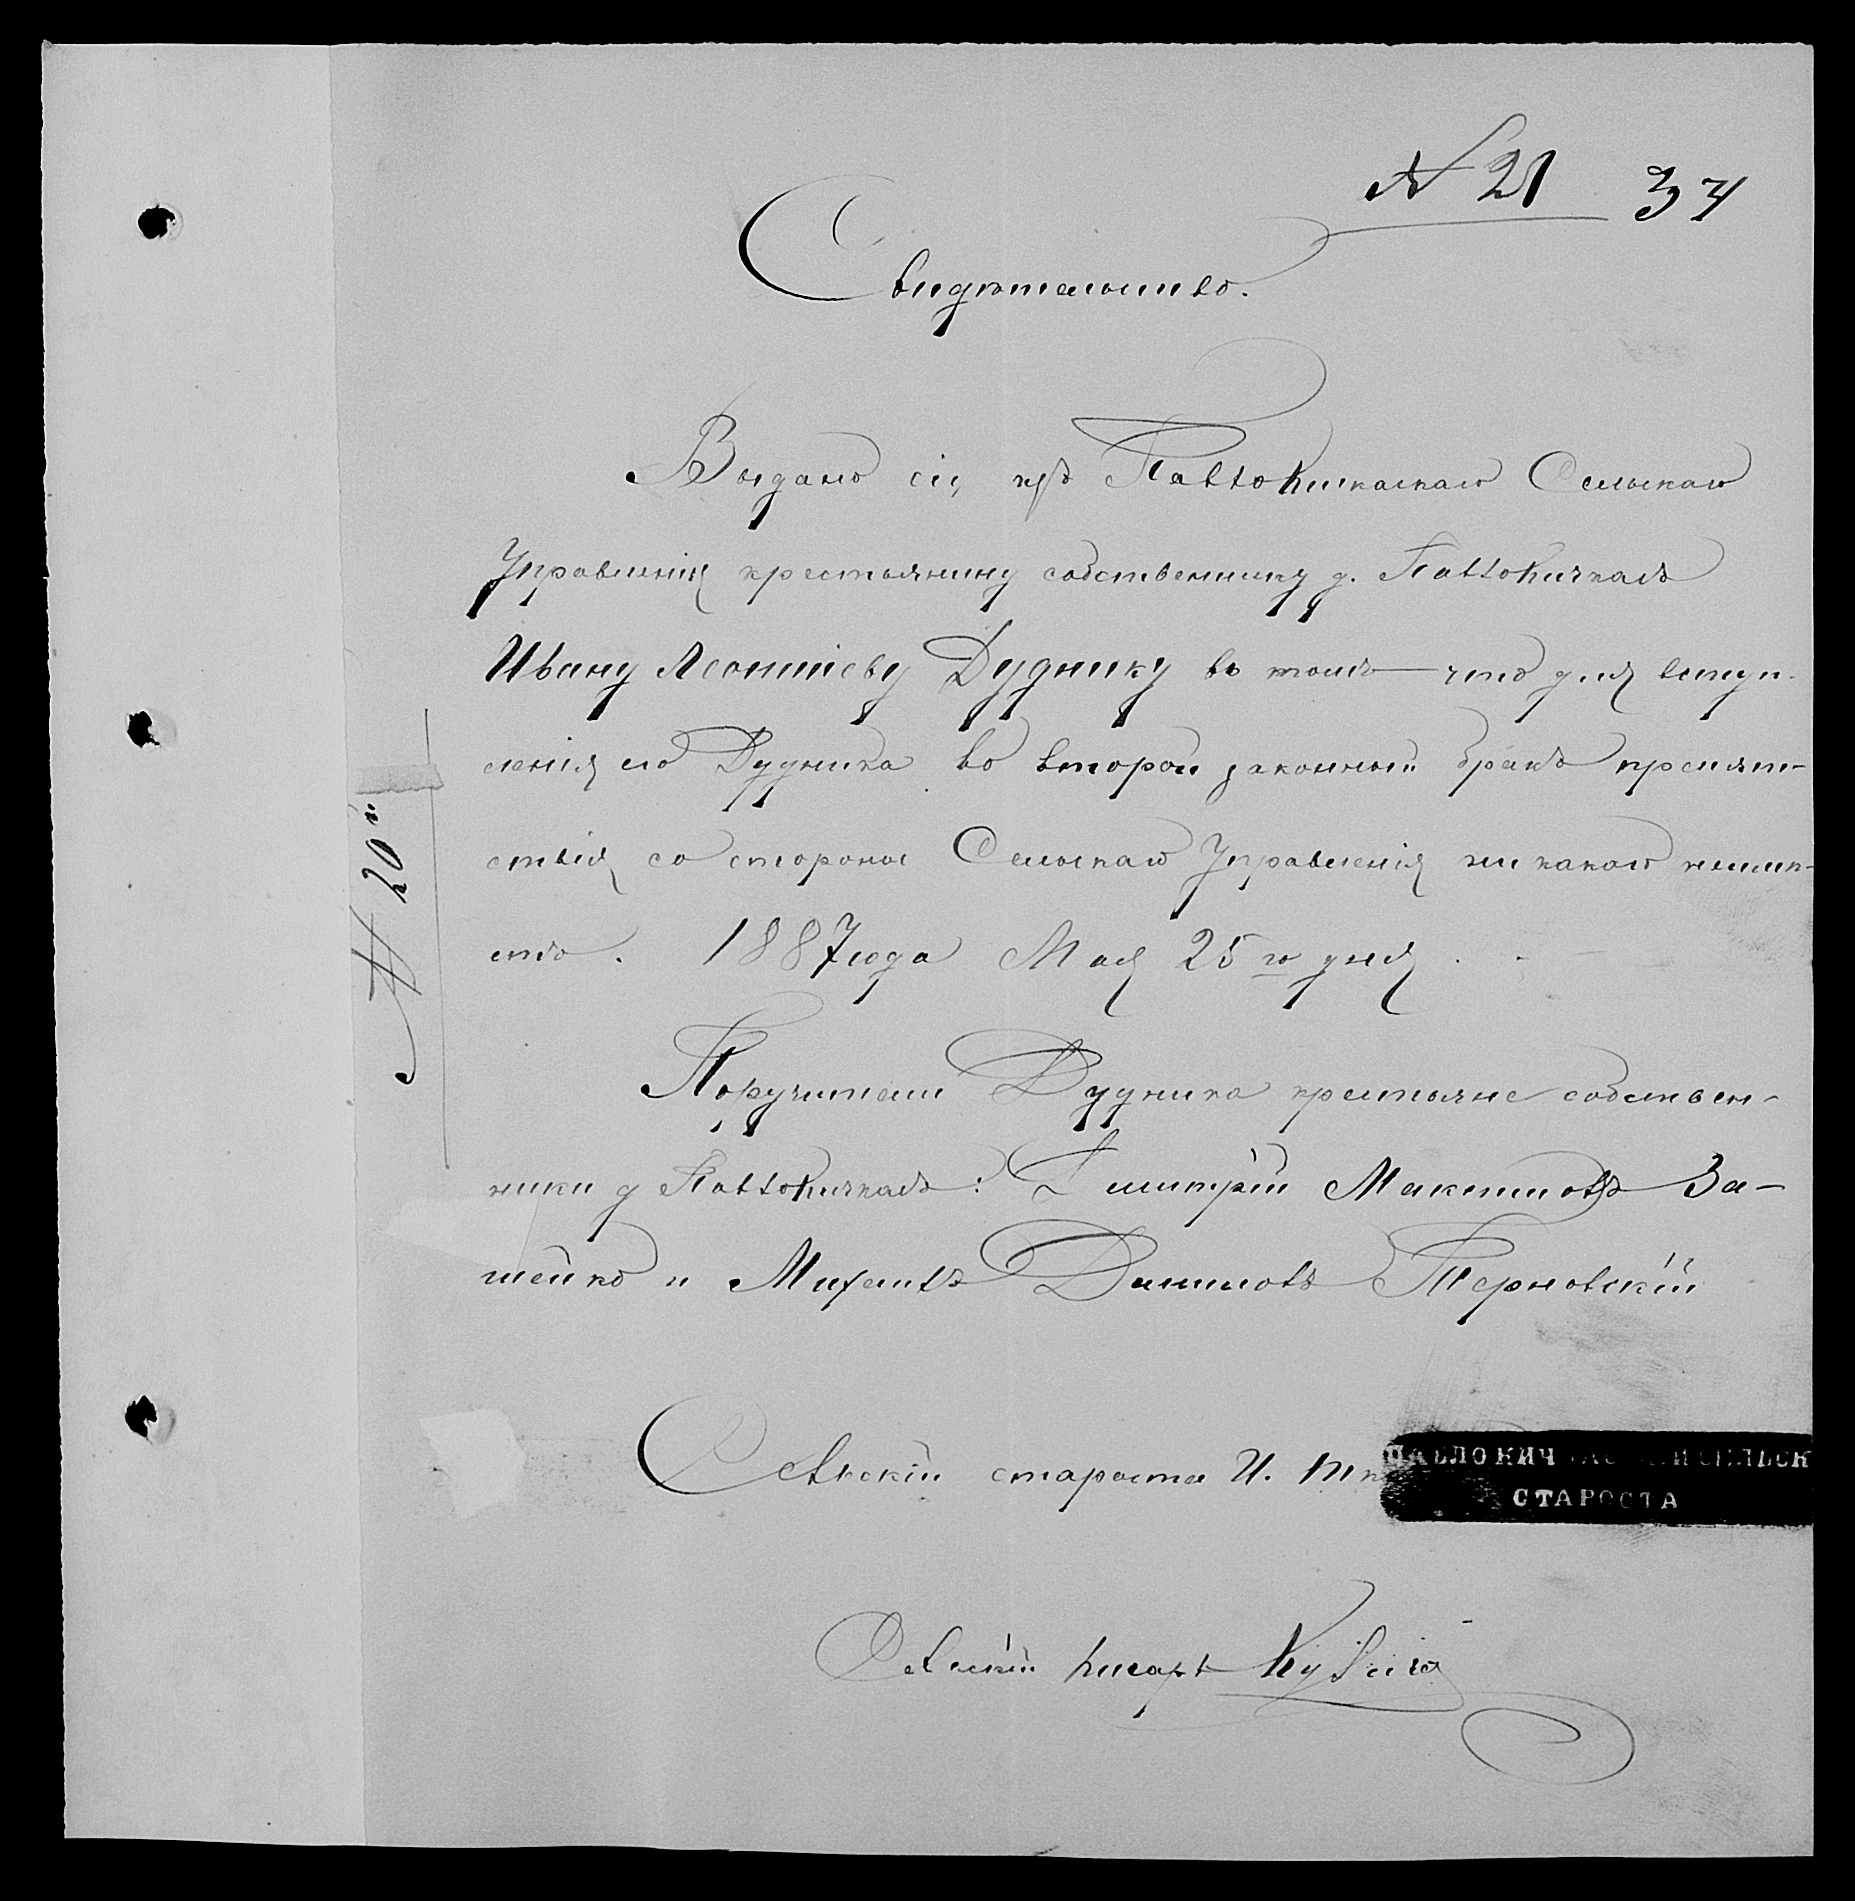 № 21 34
Свидѣтельство.
Выдано сіе изъ Павлокичкаскаго Сельскаго
Управленія крестьянину собственнику д. Павлокичкасъ
Ивану Леонтіеву Дуднику въ томъ что для вступ-
ленія его Дудника во второй законный бракъ препят-
ствія со стороны Сельскаго Управленія ни какого неимѣ-
етъ. 1887 года Мая 25 го дня
№ 20й
Поручители Дудника крестьяне собствен-
ники д Павлокичкасъ: Дмитрій Максимовъ За-
тейко и Михаилъ Даниловъ Терновскій
Сельскій староста И.
ПАВЛОКИЧКАСКІЙ СЕЛЬСК
СТАРОСТА
Сельскій писарь